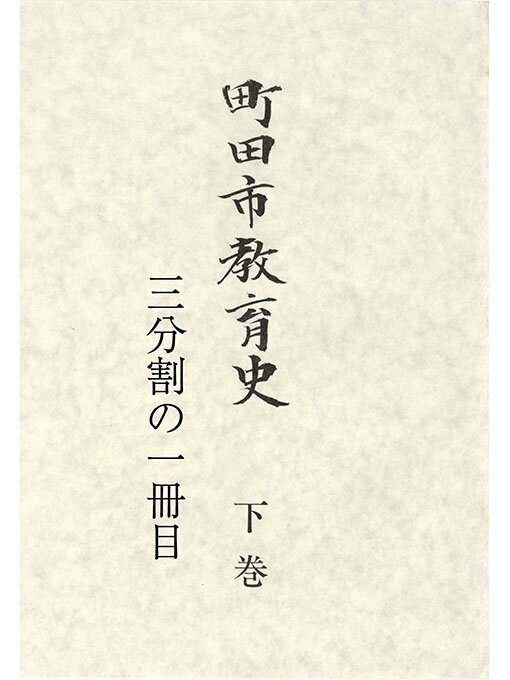 町田市教育史　下巻
三分割の一冊目